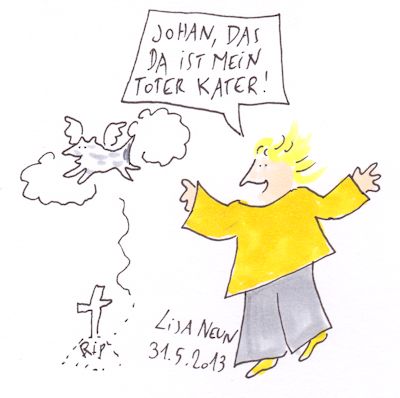 JOHAN, DAS
DA IST MEIN
TOTER KATER!
RIP
LISA NEUN
31.5.2013